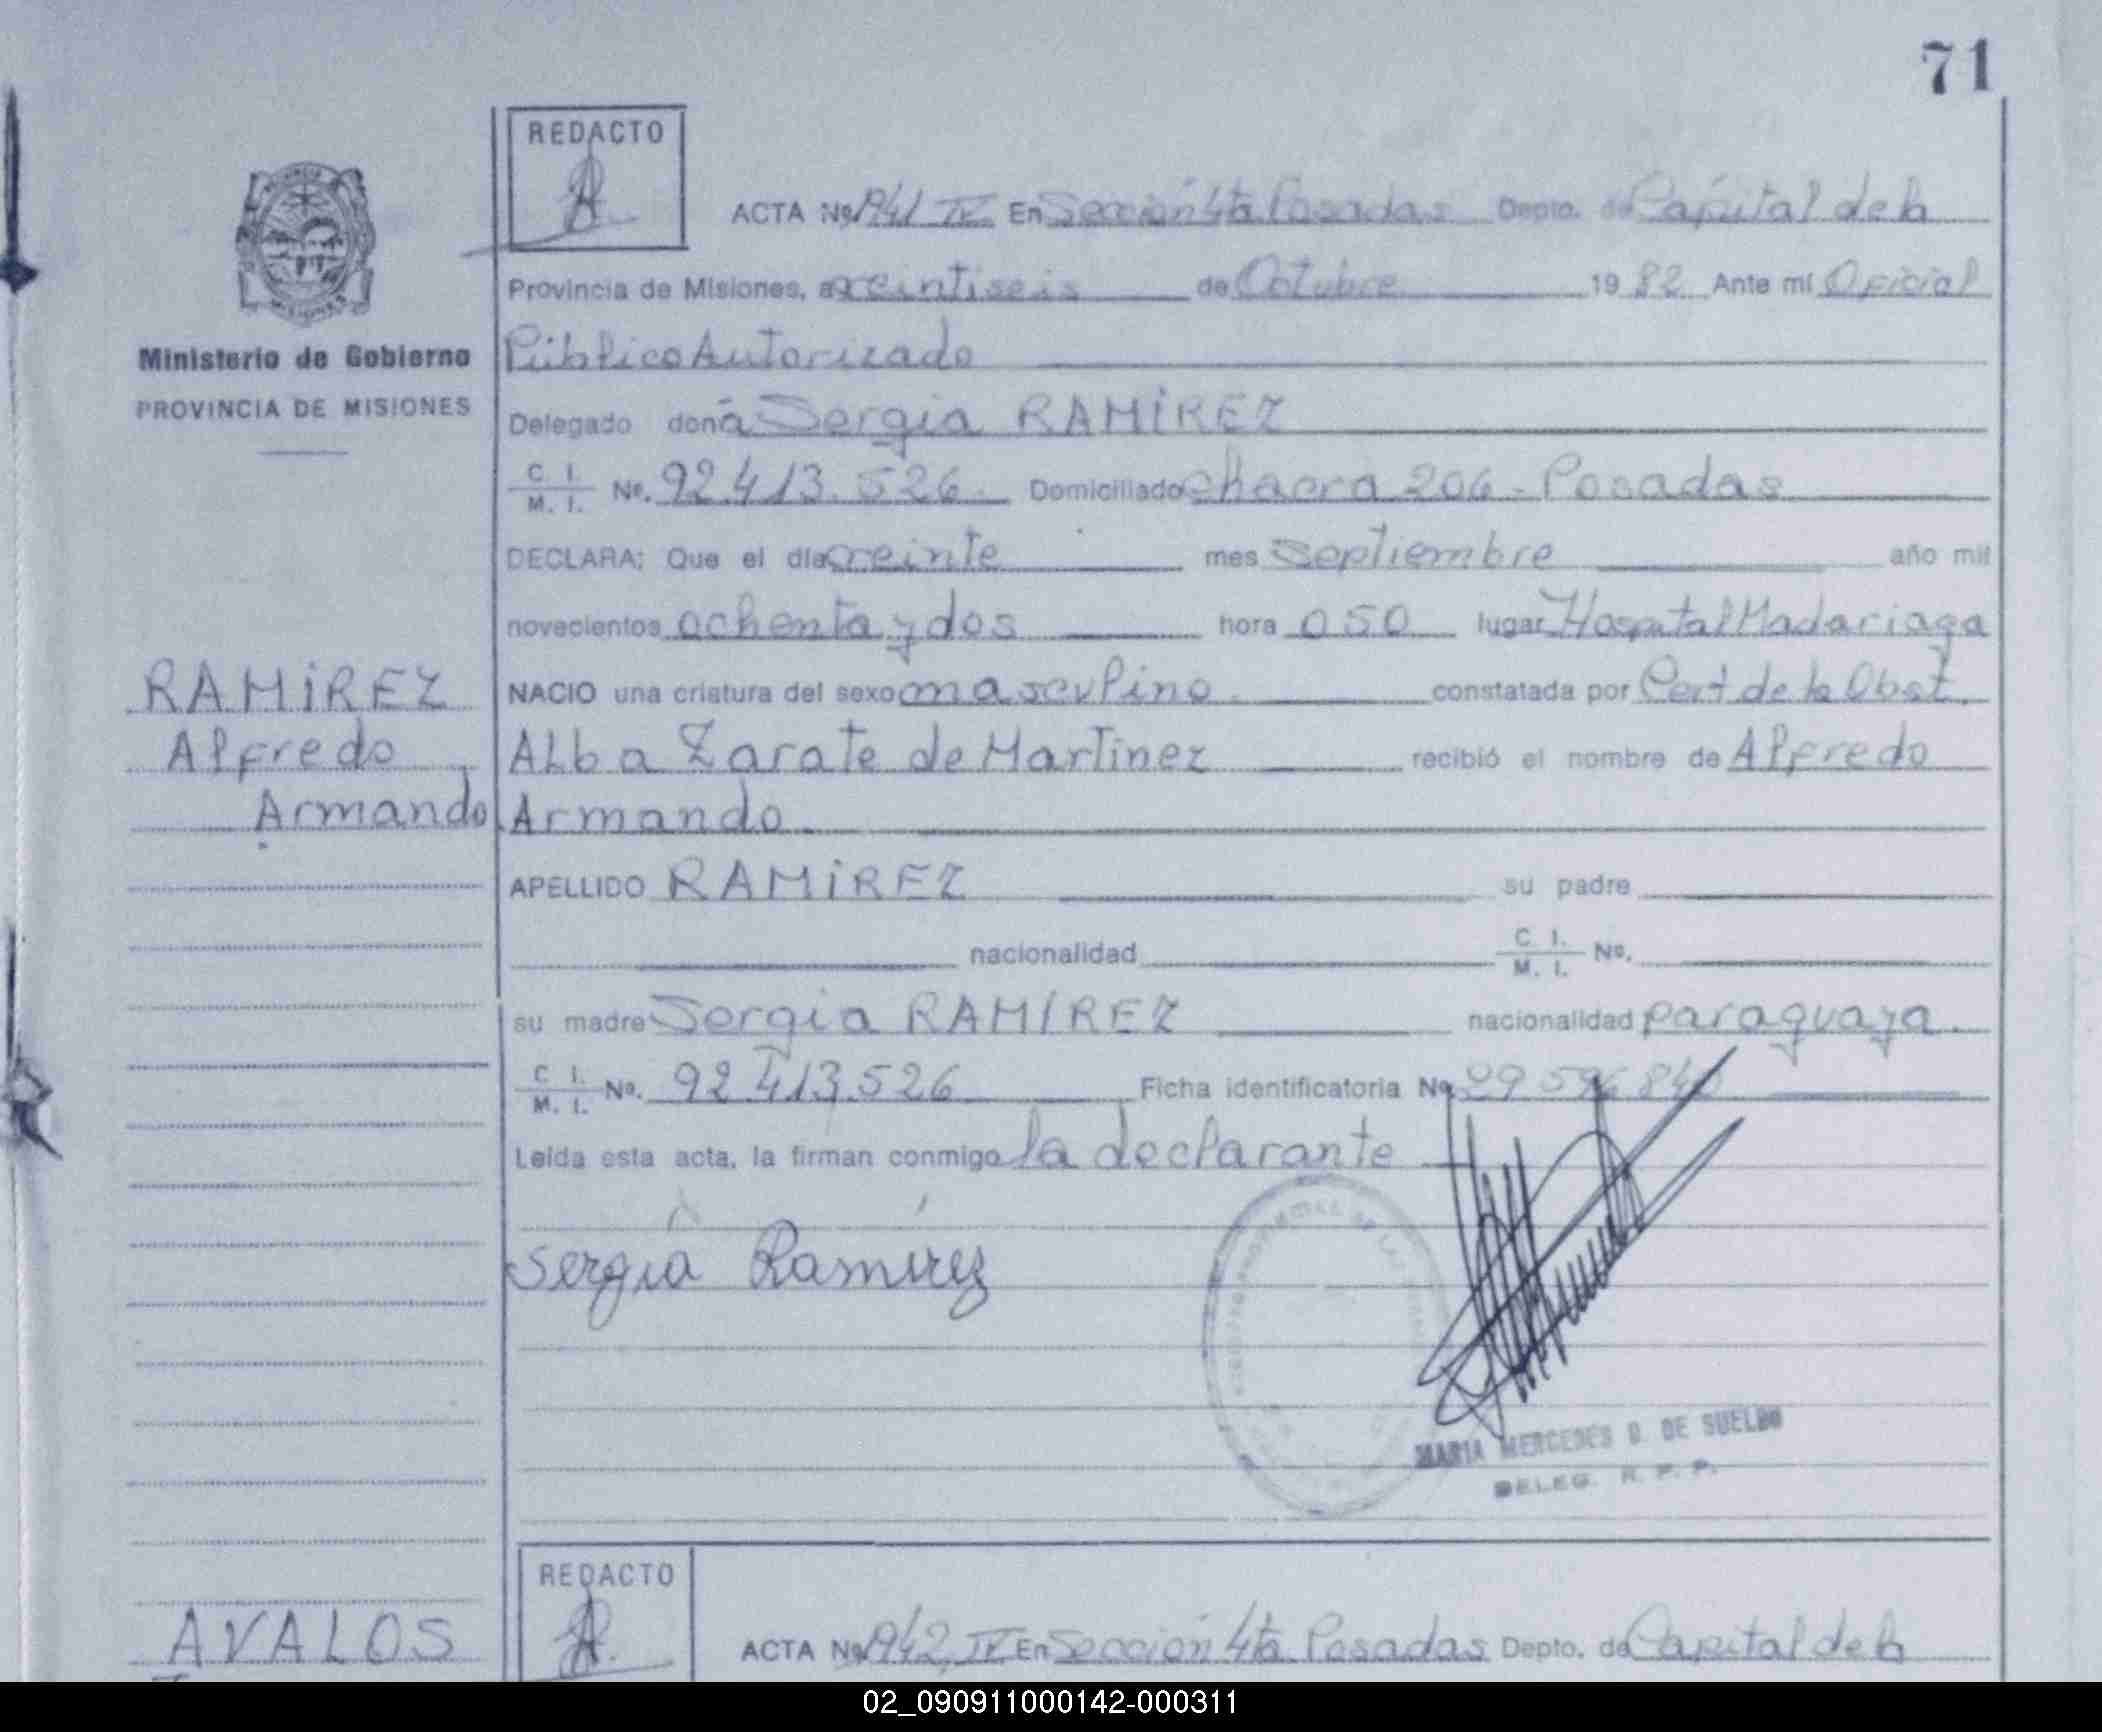 71
REDACTO
ACTA Nº 1941 IV En Sección 4ta Posadas Depto. de Capital de la
Provincia de Misiones, a veintiseis de Octubre 1982 Ante mí Oficial
Ministerio de Gobierno
Público Autorizado
PROVINCIA DE MISIONES
Delegado doña Sergia RAMÍREZ
C. I. / M. I. No. 92.413.526. Domiciliado chacra 206 - Posadas
DECLARA; Que el día veinte mes septiembre año mil
novecientos ochenta y dos hora 0 50 lugar Hospital Madariaga
RAMÍREZ
NACIO una criatura del sexo masculino. constatada por Cert de la Obst.
Alfredo
Alba Zarate de Martinez recibió el nombre de Alfredo
Armando
Armando.
APELLIDO RAMÍREZ su padre
nacionalidad C. I. / M. I. No.
su madre Sergia RAMIREZ nacionalidad paraguaya.
C. I. / M. I. No. 92 413.526 Ficha identificatoria No
Leída esta acta, la firman conmigo la declarante
Sergia Ramírez
MARIA MERCEDES D. DE SUELDO
DELEG. R. P. P.
REDACTO
AVALOS
ACTA Nº 1942 IV En Sección 4ta Posadas Depto. de Capital de la
02_090911000142-000311